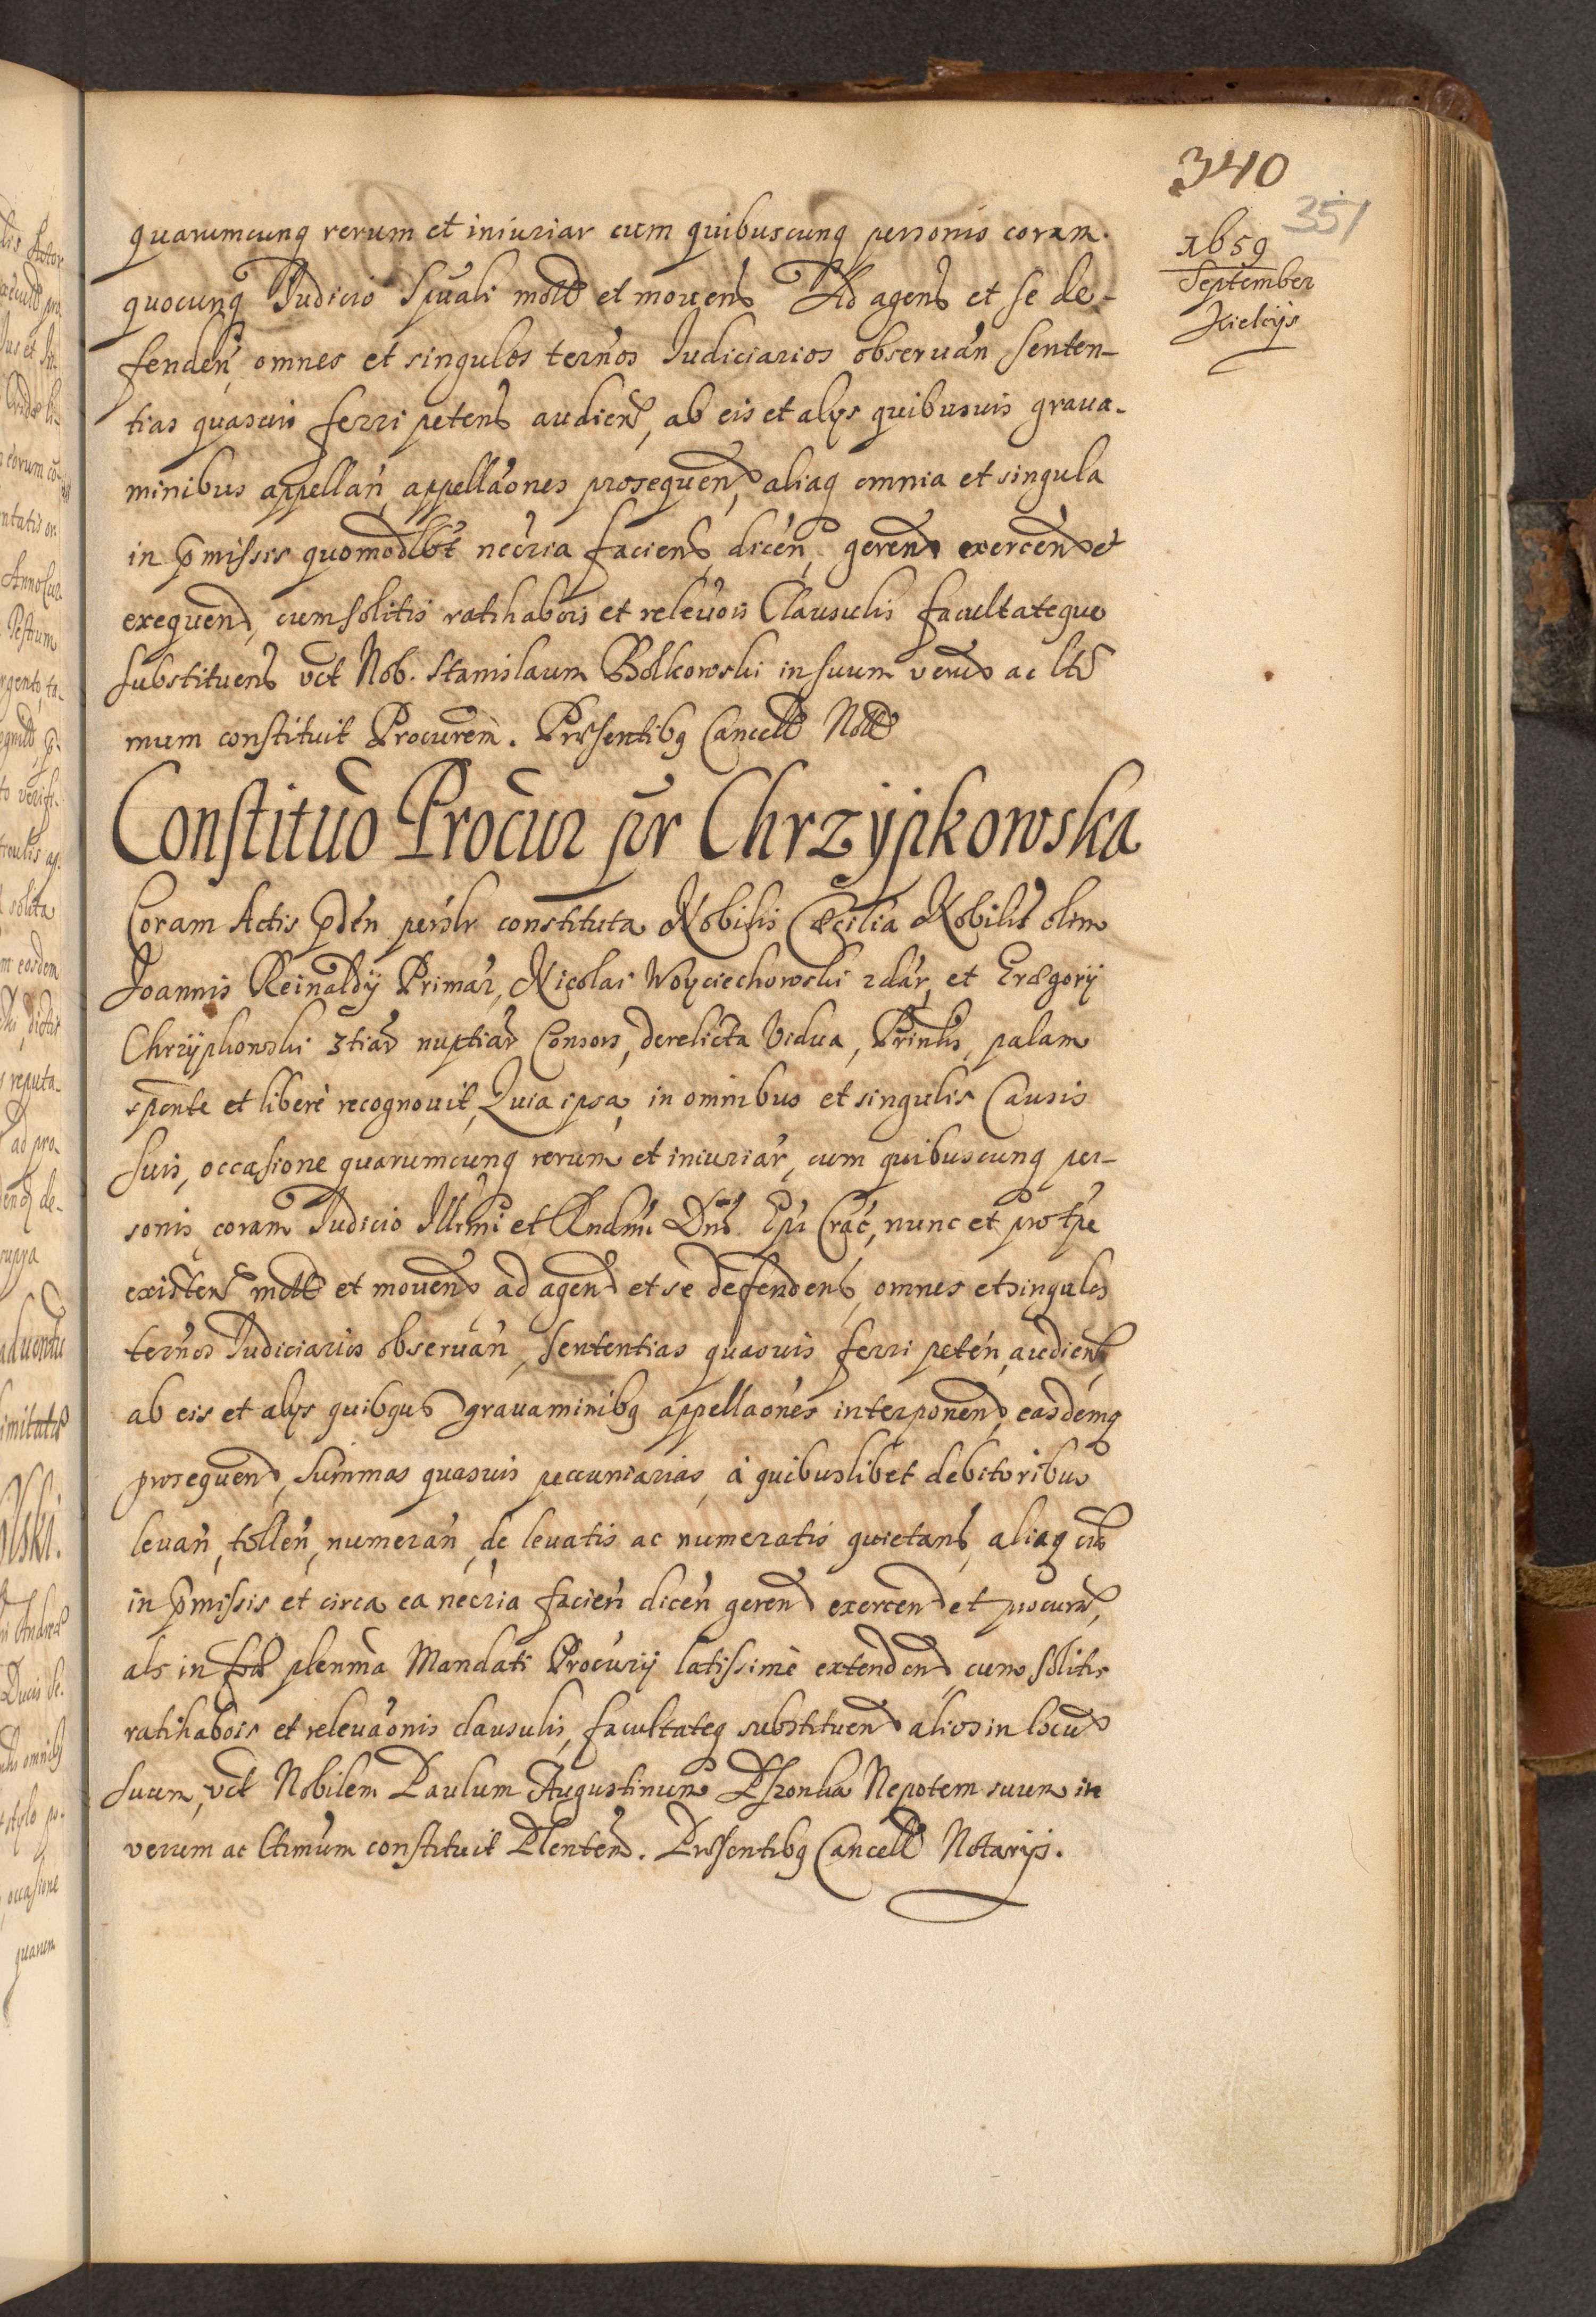 340
351
1659
September
Kielcijs
quarumcunq rerum et iniuriar cum quibuscunq personis coram
quocunq Judicio Spuali mott et mouend Ad agend et se de-
fenden, omnes et singulos ternos Judiciarios obseruan senten-
tias quasuis ferri petend audiend, ab eis et alys quibusuis graua-
minibus appellan, appellaones prosequend, aliaq omnia et singula
in pmissis quomodlbt necria faciend, dicen, gerend exercend et
exequend, cum solitis ratihabois et releuois Clausulis facultateque
substituend vct Nob. Stanislaum Bolkowski in suum verum ac ltd
mum constituit Procurem. Prsentibq Cancell Nott
Constituo Procur pr Chrzypkowska
Coram Actis pden persolr constituta Nobilis Cæcilia Nobiliu olim
Joannis Reinaldy Primar, Nicolai Woyciechowski 2dar, et Grægorij
Chrzypkowski 3tiar nuptiar Consors, derelicta Vidua, Prinlis, palam
sponte et libere recognouit, Quia ipsa, in omnibus et singulis Causis
suis, occasione quarumcunq rerum et iniuriar, cum quibuscunq per-
sonis, coram Judicio Illrmi et Rndmi Dni Epi Crac, nunc et pro tpe
existend mott et mouend ad agend et se defendend, omnes et singulos
ternos Judiciarios obseruan, sententias quasuis ferri peten, audiend,
ab eis et alys quibqus grauaminibq appellaones interponend, easdemq
prosequend, summas quasuis pecuniarias, a quibuslibet debitoribus
leuan, tollen, numeran, de leuatis ac numeratis quietand, aliaq oia
in pmissis et circa ea necria facien dicen gerend exercend et procurand,
als in plenma Mandati Procurij latissime extendend, cum solitis
ratihabois et releuaonis clausulis, facultateq substituend alios in locum
suum, vct Nobilem Paulum Augustinum Nepotem suum in
verum ac ltimum constituit Plentem. Prsentibq Cancell Notarijs.